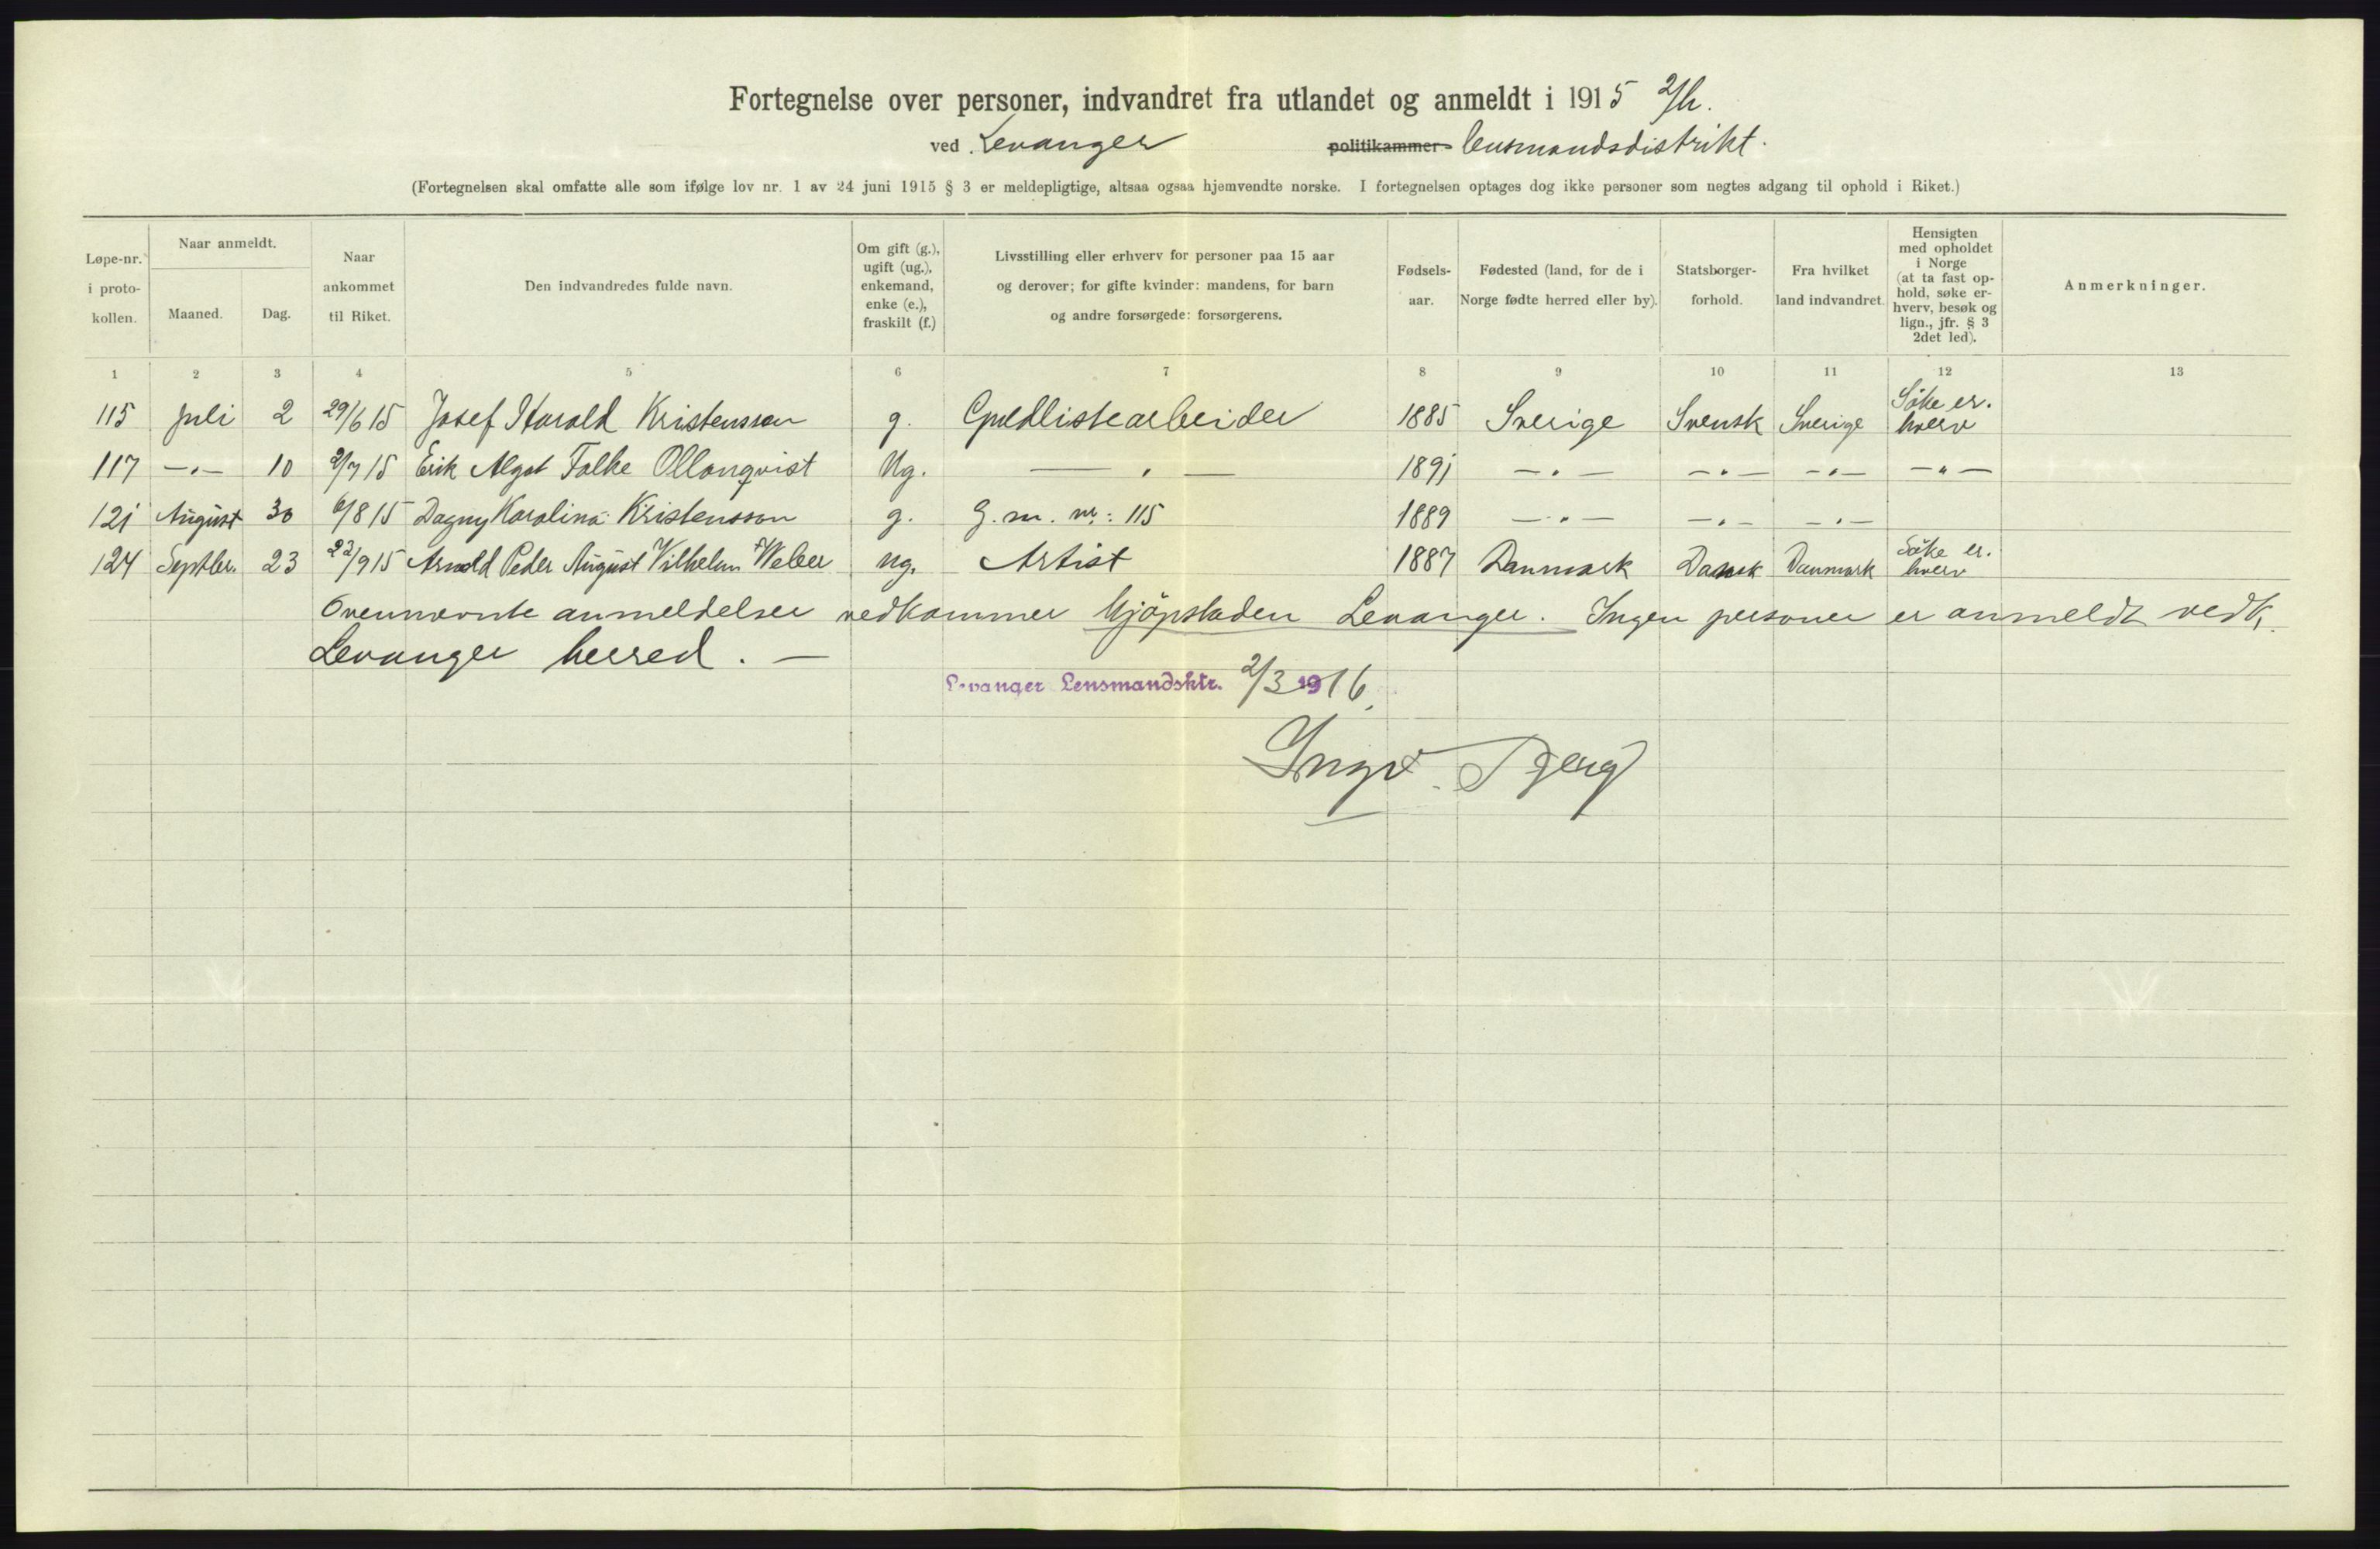 Fortegnelse over personer, indvandret fra utlandet og anmeldt i 1915 2/h.
ved Levanger politikammer lensmandsdistrikt.
(Fortegnelsen skal omfatte alle som ifølge lov nr. 1 av 24 juni 1915 § 3 er meldepligtige, altsaa ogsaa hjemvendte norske. I fortegnelsen optages dog ikke personer som negtes adgang til ophold i Riket.)
Løpe-nr. i proto-kollen.
Naar anmeldt.
Maaned.
Dag.
Naar ankommet til Riket.
Den indvandredes fulde navn.
Om gift (g.), ugift (ug.), enkemand, enke (e.), fraskilt (f.)
Livsstilling eller erhverv for personer paa 15 aar
og derover; for gifte kvinder: mandens, for barn
og andre forsørgede: forsørgerens.
Fødsels-aar.
Fødested (land, for de i
Norge fødte herred eller by).
Statsborger-forhold.
Fra hvilket land indvandret.
Hensigten med opholdet i Norge (at ta fast op-hold, søke er-hverv, besøk og lign., jfr. § 3 2det led).
Anmerkninger.
1 2 3 4 5 6 7 8 9 10 11 12 13
115 Juli 2 29/6 15 Josef Harald Kristensson g. Guldlistearbeider 1885 Sverige Svensk Sverige Søke er.hverv
117 —"— 10 2/7 15 Erik Algot Folke Ollonqvist Ug. —"— 1891 —"— —"— —"— —"—
121 August 30 6/8 15 Dagny Karolina Kristensson g. G. m. nr: 115 1889 —"— —"— —"—
124 Septber. 23 22/9 15 Arnold Peder August Vilhelm Weber ug. Artist 1887 Danmark Dansk Danmark Søke er.hverv
Ovennevnte anmeldelser vedkommer kjöpstaden Levanger. Ingen personer er anmeldt vedk.
Levanger herred. —
Levanger Lensmandsktr. 2/3 1916.
Ingv.